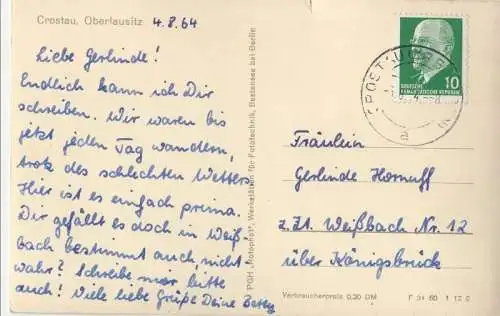 Crostau, Oberlausitz 4.8.64
Liebe Gerlinde!
Endlich kann ich Dir
schreiben. Wir waren bis
jetzt jeden Tag wandern,
trotz des schlechten Wetters.
Hier ist es einfach prima.
Dir gefällt es doch in Weiß-
bach bestimmt auch, nicht-
wahr? Schreibe mir bitte
auch! Viele liebe Grüße Deine
PGH „Fotopost“, Werkstätten für Fototechnik, Bestensee bei Berlin
10
DEUTSCHE
DEMOKRATISCHE REPUBLIK
Fräulein
Gerlinde Hornuff
z.Zt. Weißbach Nr. 12
über Königsbrück
Verbraucherpreis 0,20 DM